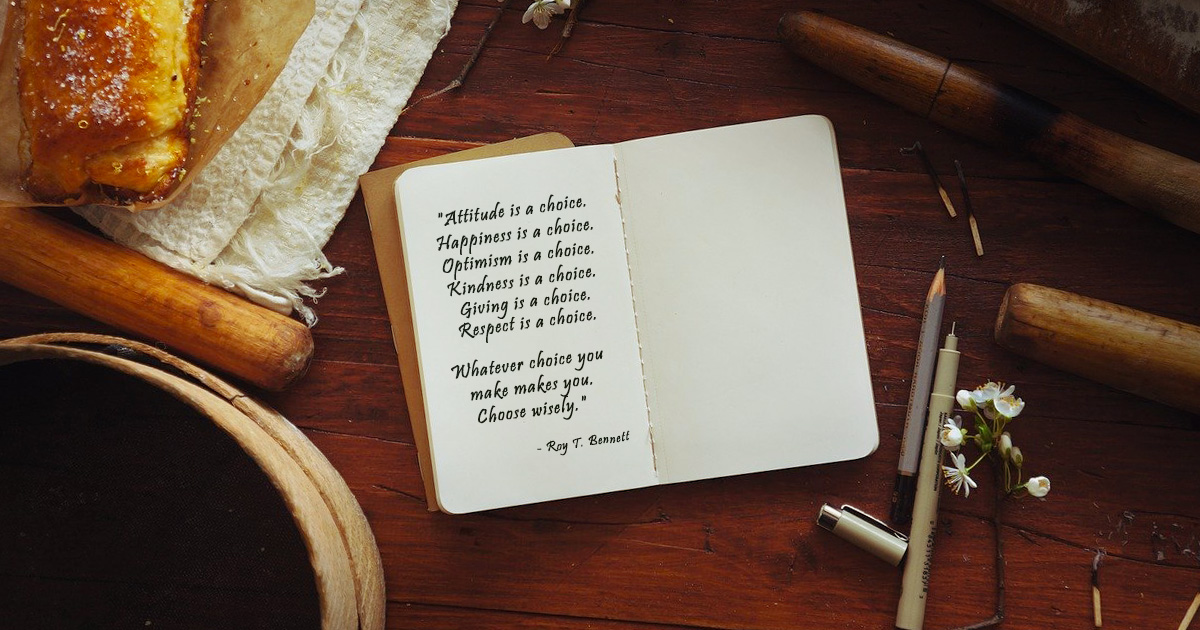 "Attitude is a choice.
Happiness is a choice.
Optimism is a choice.
Kindness is a choice.
Giving is a choice.
Respect is a choice.
Whatever choice you
make makes you.
Choose wisely."
- Roy T. Bennett